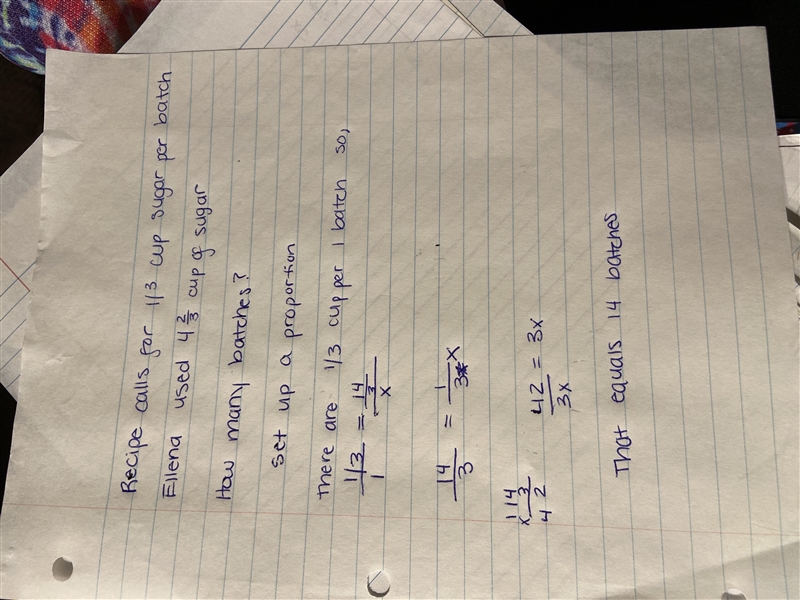 Recipe calls for 1/3 cup sugar per batch
Ellena used 4 2/3 cup of sugar
How many batches?
set up a proportion
there are 1/3 cup per 1 batch so,
1/3 / 1 = 14/3 / x
14/3 = 1/3 x
1 14
x 3
4 2
42 = 3x
3x
That equals 14 batches